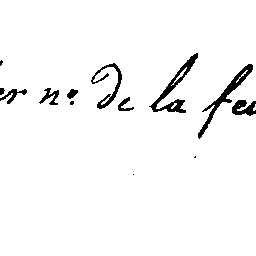 er n.º de la feu